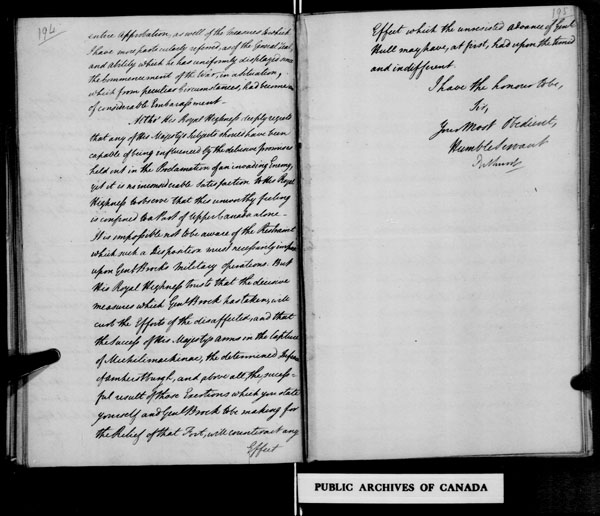 194
entire Approbation, as well of the Measures to which
I have more particularly referred, as of the General Zeal,
and ability which he has uniformly displayed since
the Commencement of the War, in a situation,
which from peculiar Circumstances, had become one
of considerable Embarassment —
Altho' His Royal Highness deeply regrets
that any of His Majesty's Subjects should have been
capable of being influenced by the delusive promises
held out in the Proclamation of an invading Enemy,
yet it is no inconsiderable Satisfaction to His Royal
Highness to observe that this unworthy feeling
is confined to a Part of Upper Canada alone —
It is impossible not to be aware of the Restraint
which such a Disposition must necessarily impose
upon Genl Brock's Military Operations. But
His Royal Highness trusts that the decisive
measures which Genl Brock has taken, will
curb the Efforts of the disaffected, and that
the Success of His Majesty's arms in the Capture
of Michilimackinac, the determined Defence
of Amherstburgh, and above all, the success-
ful result of those Exertions which you state
yourself and Genl Brock to be making for
the Relief of that Fort, will counteract any
Effect
195
Effect which the unresisted advance of Genl
Hull may have, at first, had upon the timid
and indifferent.
I have the honour to be,
Sir,
Your Most Obedient,
Humble Servant
Bathurst
PUBLIC ARCHIVES OF CANADA